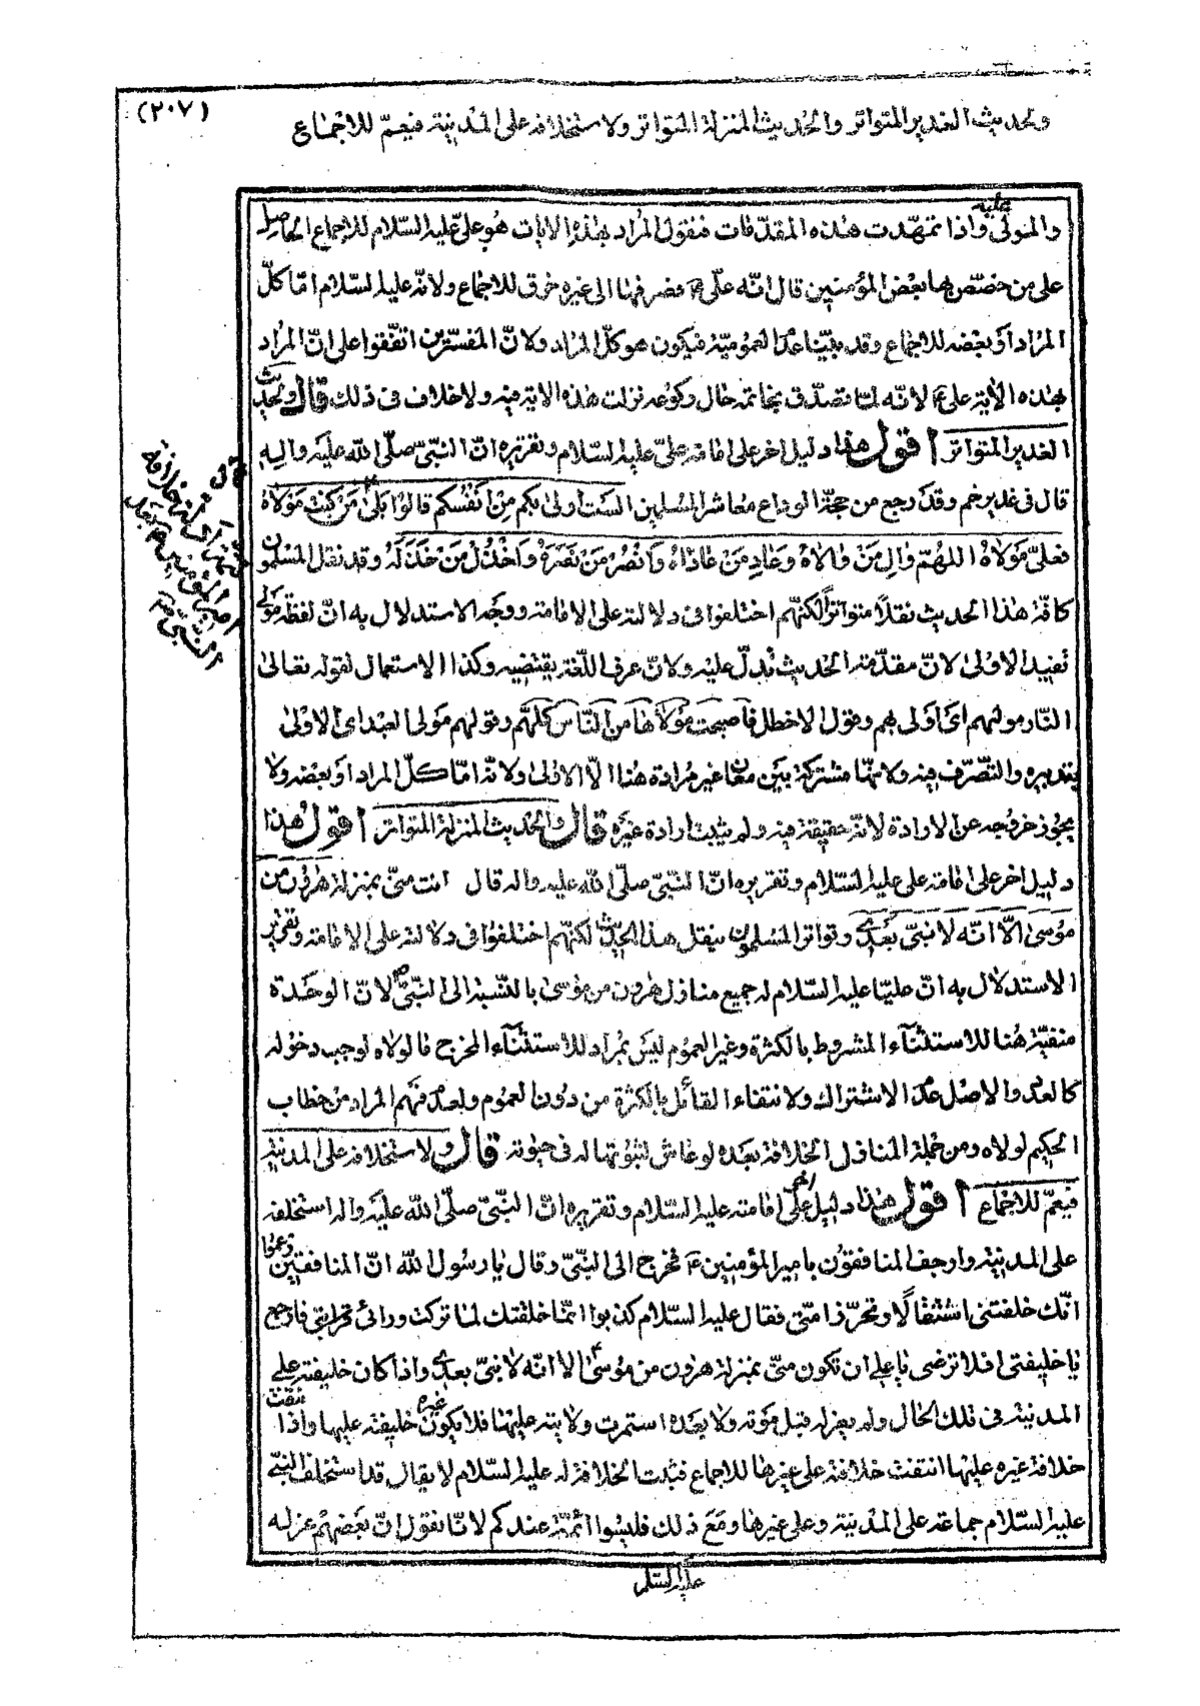 (٢٠٧)
ولحديث الغدير المتواتر والحديث المنزلة المتواتر ولاستخلافه على المدينة فيعمّ للاجماع
والمولى عليه واذا تمهّدت هذه المقدّمات فنقول المراد بهذه الايات هو علىّ عليه السّلام للاجماع الحاصل
على من خصّص بها بعض المؤمنين قال انّه علىّ ع فصرفها الى غيره خرق للاجماع ولانّه عليه السّلام امّا كلّ
المراد او بعضه للاجماع وقد بيّنا عدم العموميّة فيكون هو كلّ المراد ولانّ المفسّرين اتّفقوا على انّ المراد
بهذه الاية على ع لانّه لمّا تصدّق بخاتمه حال ركوعه نزلت هذه الاية فيه ولا خلاف فى ذلك قال ولحديث
الغدير المتواتر اقول هذا دليل اخر على امامة علىّ عليه السّلام وتقريره انّ النّبىّ صلّى الله عليه واله
قال فى غدير خم وقد رجع من حجّة الوداع معاشر المسلمين الست اولى بكم من انفسكم قالوا بلى قال من كنت مولاه
فعلىّ مولاه اللهمّ وال من والاه وعاد من عاداه وانصر من نصره واخذل من خذله وقد نقل المسلمون
كافّة هذا الحديث نقلا متواترا لكنّهم اختلفوا فى دلالته على الامامة ووجه الاستدلال به انّ لفظة مولى
تفيد الاولى لانّ مقدّمة الحديث تدلّ عليه ولانّ عرف اللّغة يقتضيه وكذا الاستعمال لقوله تعالى
النّار موليهم اى اولى بهم وقول الاخطل فاصبحت مولاها من النّاس كلّهم وقولهم مولى العبد اى الاولى
بتدبيره والتّصرّف فيه ولانّها مشتركة بين معان غير مرادة هنا الّا الاولى ولانّه امّا كلّ المراد او بعضه ولا
يجوز خروجه عن الارادة لانّه حقيقة فيه ولم يثبت ارادة غيره قال والحديث المنزلة المتواتر اقول هذا
دليل اخر على امامة على عليه السّلام وتقريره انّ النّبىّ صلّى الله عليه واله قال انت منّى بمنزلة هرون من
موسى الّا انّه لا نبىّ بعدى وتواتر المسلمون بنقل هذا الحديث لكنّهم اختلفوا فى دلالته على الامامة وتقرير
الاستدلال به انّ عليّا عليه السّلام له جميع منازل هرون من موسى بالنّسبة الى النّبىّ ص لانّ الوحدة
منفيّة هنا للاستثناء المشروط بالكثرة وغير العموم ليس بمراد للاستثناء المخرج ما لولاه لوجب دخوله
كالعدد والاصل عدم الاشتراك ولانتفاء القائل بالكثرة من دون العموم ولعدم فهم المراد من خطاب
الحكيم لولاه ومن جملة المنازل الخلافة بعده لو عاش لثبوتها له فى حيوته قال ولاستخلافه على المدينة
فيعمّ للاجماع اقول هذا دليل اخر على امامته عليه السّلام وتقريره انّ النّبىّ صلّى الله عليه واله استخلفه
على المدينة وارجف المنافقون بامير المؤمنين ع فخرج الى النّبىّ وقال يا رسول الله انّ المنافقين زعموا
انّك خلّفتنى استثقالا وتحرّزا منّى فقال عليه السّلام كذبوا انّما خلّفتك لما تركت ورائى فارجع
يا خليفتى افلا ترضى يا على ان تكون منّى بمنزلة هرون من موسى الا انّه لا نبىّ بعدى واذا كان خليفته على
المدينة فى تلك الحال ولم يعزله قبل موته ولا بعده استمرت ولايته عليها فلا يكون غيره خليفة عليها واذا انتفت
خلافة غيره عليها انتفت خلافته على غيرها للاجماع فثبت الخلافة له عليه السّلام لا يقال قد استخلف النّبىّ
عليه السّلام جماعة على المدينة وعلى غيرها ومع ذلك فليسوا ائمّة عندكم لانّا نقول انّ بعضهم عزله
عليه السلم